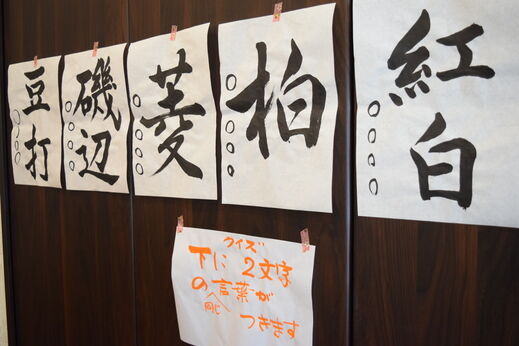 紅白
○○○○
柏
○○○○
菱
○○○○
磯辺
○○○○
豆打
○○○○
クイズ
下に 2文字
の言葉が
同じ
つきます